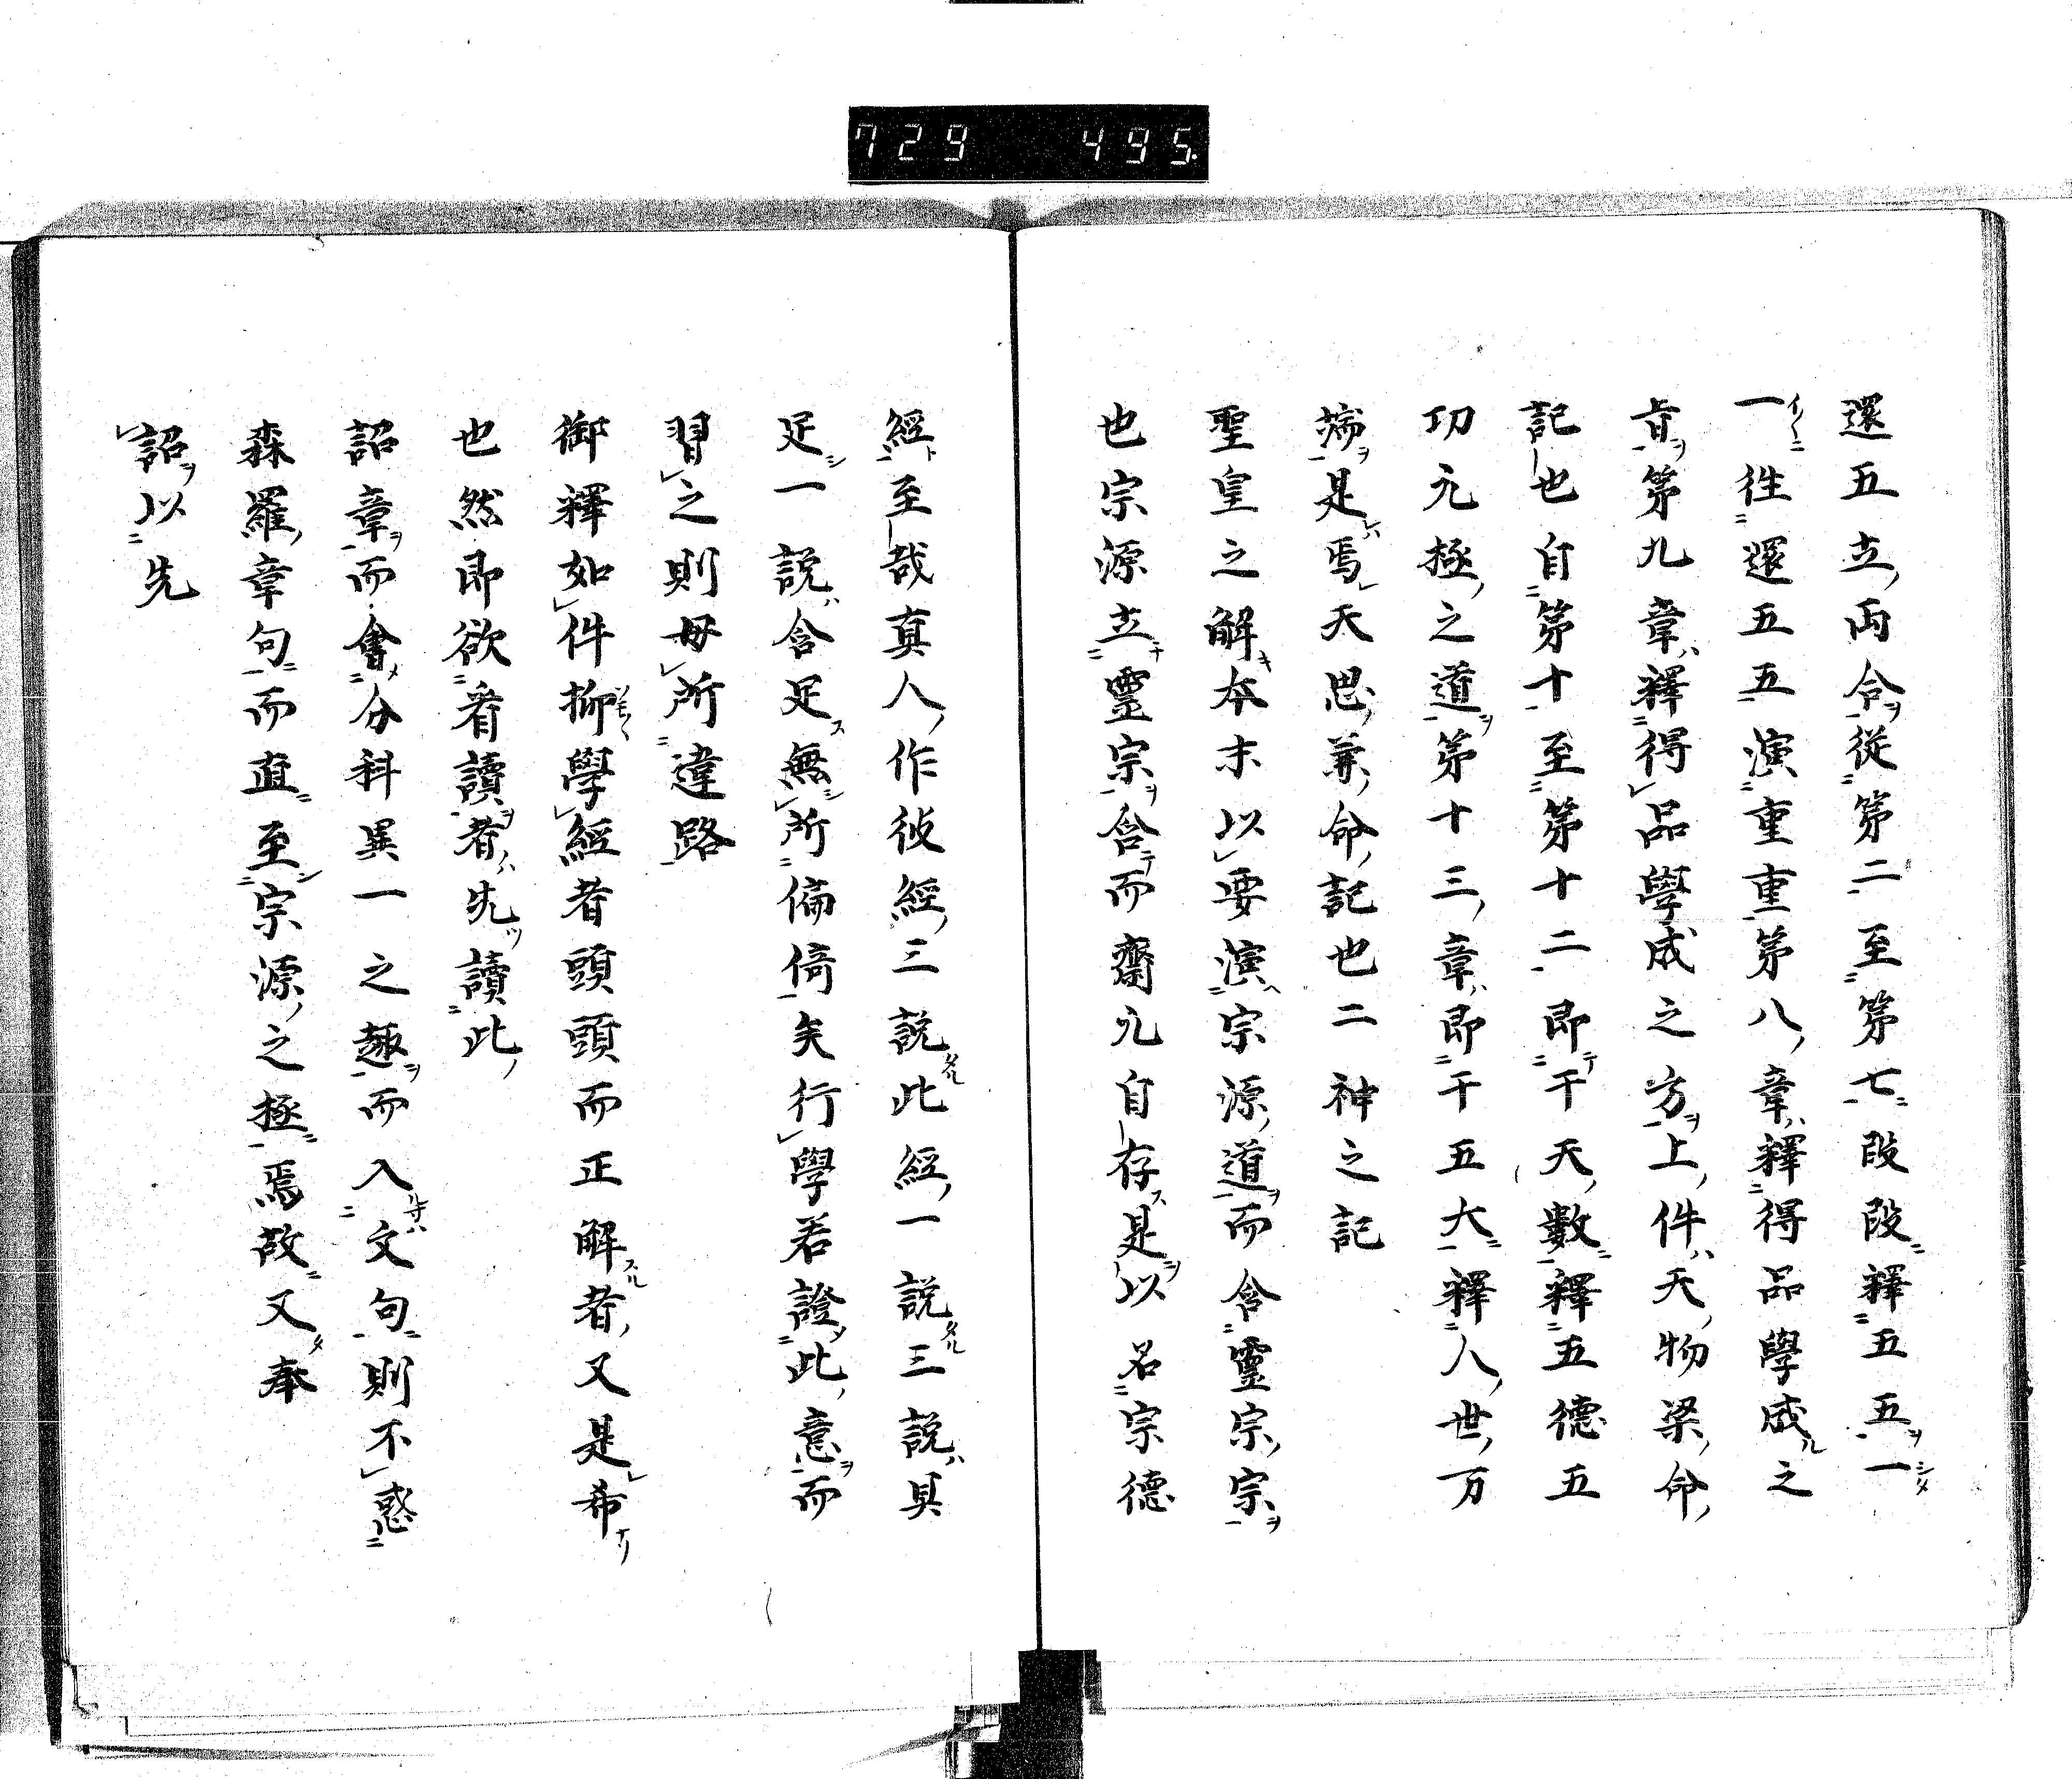 729 495
還五立両含従第二至第七段段釋五五一
一徃還五五演重重第八章釋得品學成之
旨第九章釋得品學成之方上件天物梁命
記也自第十至第十二即干天數釋五德五
功元極之道第十三章即干五大釋人世万
端是焉天思兼命記也二神之記
聖皇之解本末以要演宗源道而含靈宗宗
也宗源立靈宗含而齋元自存是以名宗德
經至哉真人作彼經三説此經一説三説具
足一説含足無所偏倚矣行學若證此意而
習之則毋所違路
御釋如件抑學經者頭頭而正解者又是希
也然即欲看讀者先讀此
詔章而會分科異一之趣而入文句則不惑
森羅章句而直至宗源之極焉故又奉
詔以先